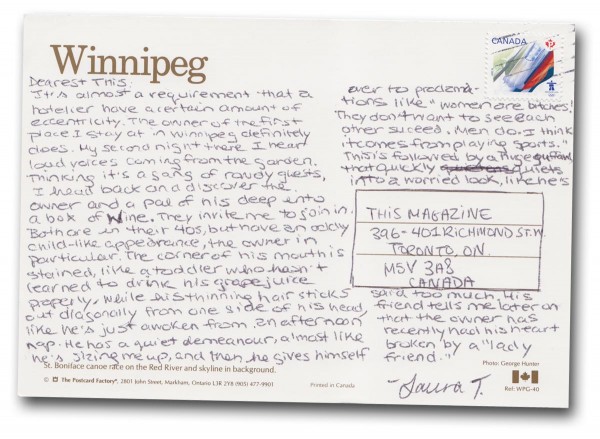 Winnipeg
CANADA
P
Dearest This.
It's almost a requirement that a
hotelier have a certain amount of
eccentricity. The owner of the first
place I stay at in Winnipeg definitely
does. My second night there I hear
loud voices coming from the garden.
Thinking it's a gang of randy guests,
I head back and discover the
owner and a pal of his deep into
a box of wine. They invite me to join in.
Both are in their 40s, but have an oddly
child-like appearance, the owner in
particular. The corner of his mouth is
stained, like a toddler who hasn't
learned to drink his grape juice
properly, while his thinning hair sticks
out diagonally from one side of his head,
like he's just awoken from an afternoon
nap. He has a quiet demeanour, almost like
he's sizing me up, and then he gives himself
over to proclama-
tions like "women are bitches!
They don't want to see each
other suceed. Men do. I think
it comes from playing sports."
This is followed by a huge guffaw
that quickly quiets
into a worried look, like he's
THIS MAGAZINE
396-401 RICHMOND ST. W.
TORONTO ON.
M5V 3A8
CANADA
said too much. His
friend tells me later on
that the owner has
recently had his heart
broken by a "lady
friend."
- Laura T.
St. Boniface canoe race on the Red River and skyline in background.
© The Postcard Factory®, 2801 John Street, Markham, Ontario L3R 2Y8 (905) 477-9901
Printed in Canada
Photo: George Hunter
Ref: WPG-40